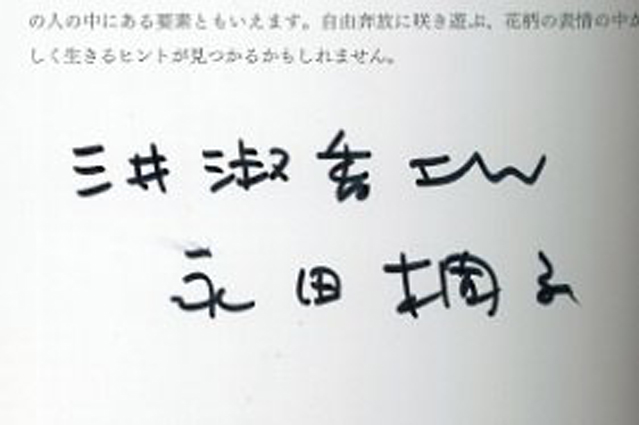 の人の中にある要素ともいえます。自由奔放に咲き遊ぶ、花柄の表情の中か
しく生きるヒントが見つかるかもしれません。
三井 淑香
永田 桐子